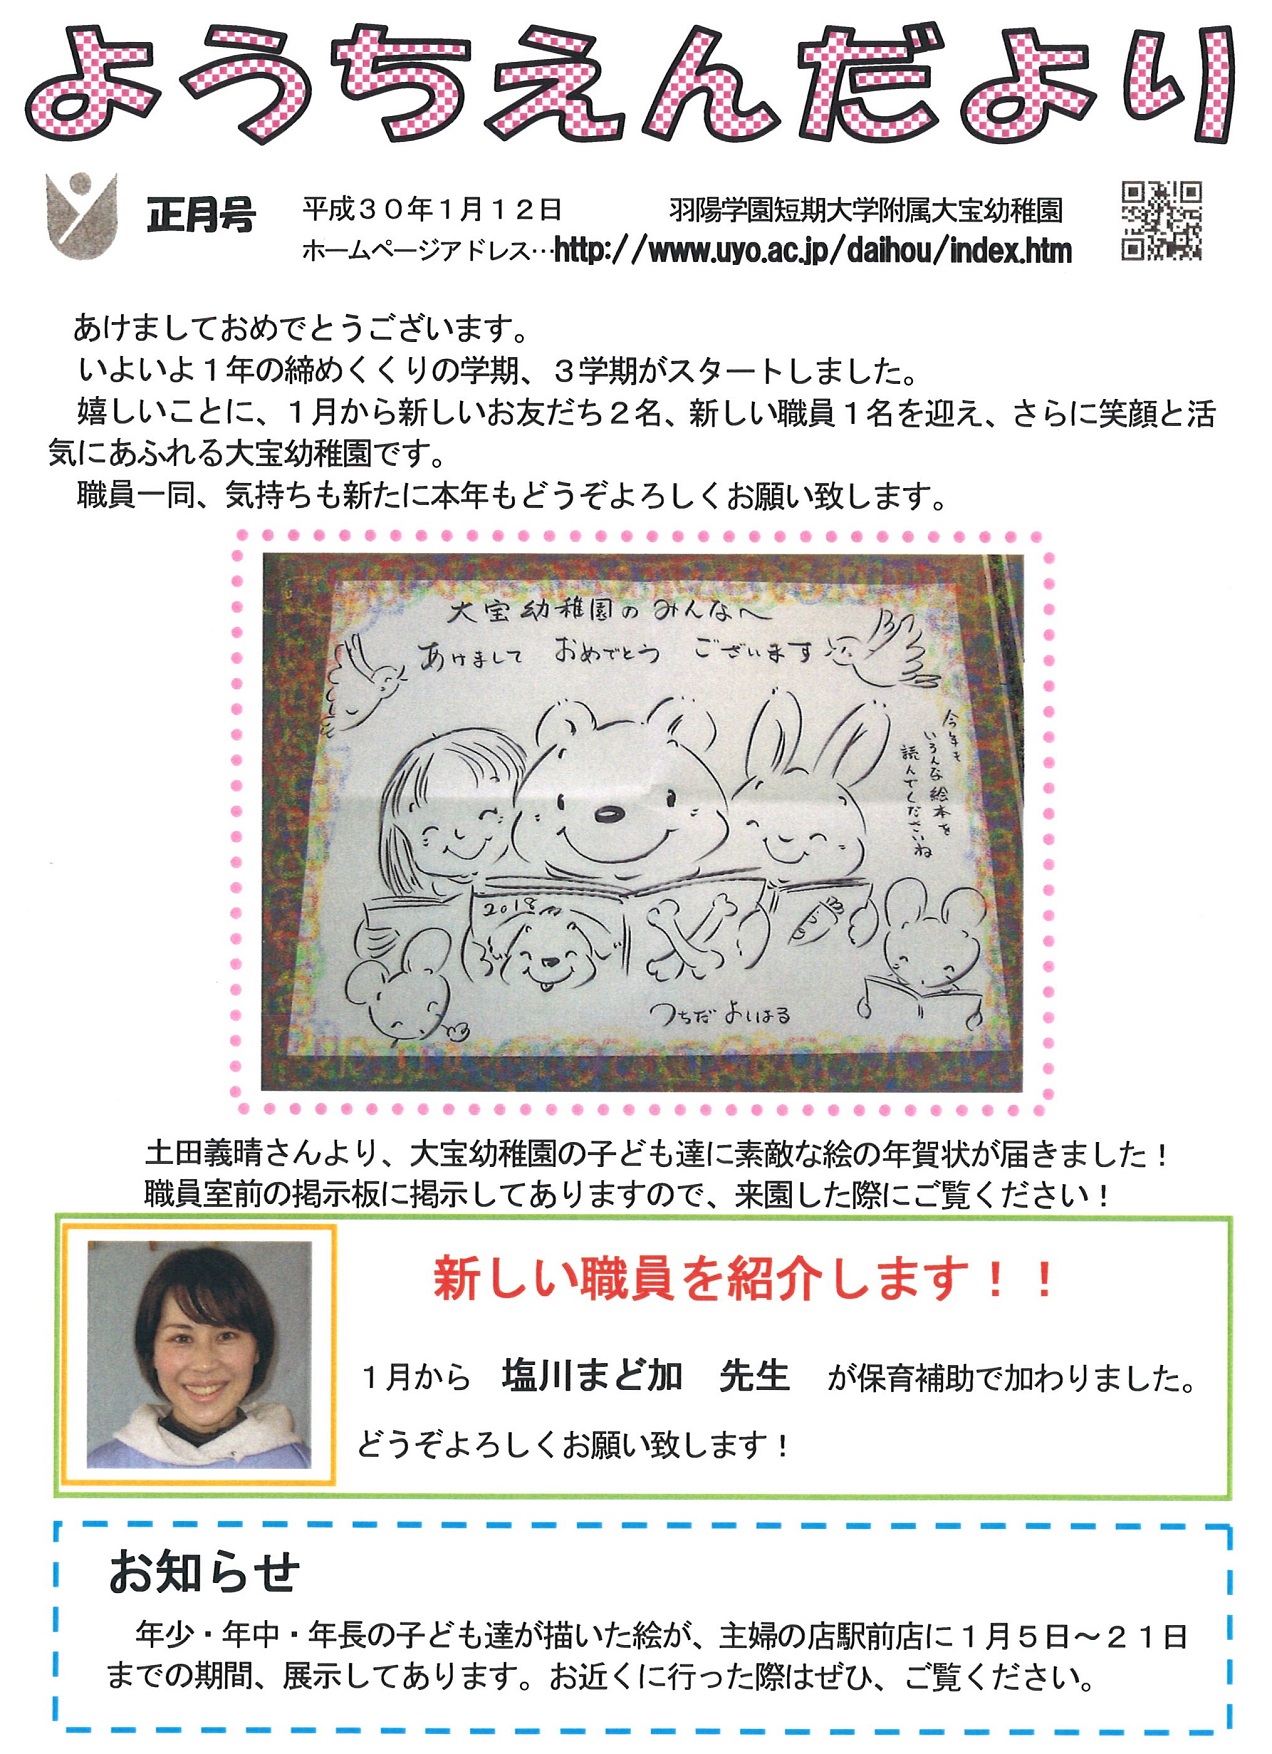 ようちえんだより
正月号 平成３０年１月１２日 羽陽学園短期大学附属大宝幼稚園
ホームページアドレス…http://www.uyo.ac.jp/daihou/index.htm
あけましておめでとうございます。
いよいよ１年の締めくくりの学期、３学期がスタートしました。
嬉しいことに、１月から新しいお友だち２名、新しい職員１名を迎え、さらに笑顔と活
気にあふれる大宝幼稚園です。
職員一同、気持ちも新たに本年もどうぞよろしくお願い致します。
大宝幼稚園のみんなへ
あけまして おめでとう ございます
今年も
いろんな絵本を
読んでくださいね
2018
つちだ よしはる
土田義晴さんより、大宝幼稚園の子ども達に素敵な絵の年賀状が届きました！
職員室前の掲示板に掲示してありますので、来園した際にご覧ください！
新しい職員を紹介します！！
１月から 塩川まど加 先生 が保育補助で加わりました。
どうぞよろしくお願い致します！
お知らせ
年少・年中・年長の子ども達が描いた絵が、主婦の店駅前店に１月５日～２１日
までの期間、展示してあります。お近くに行った際はぜひ、ご覧ください。